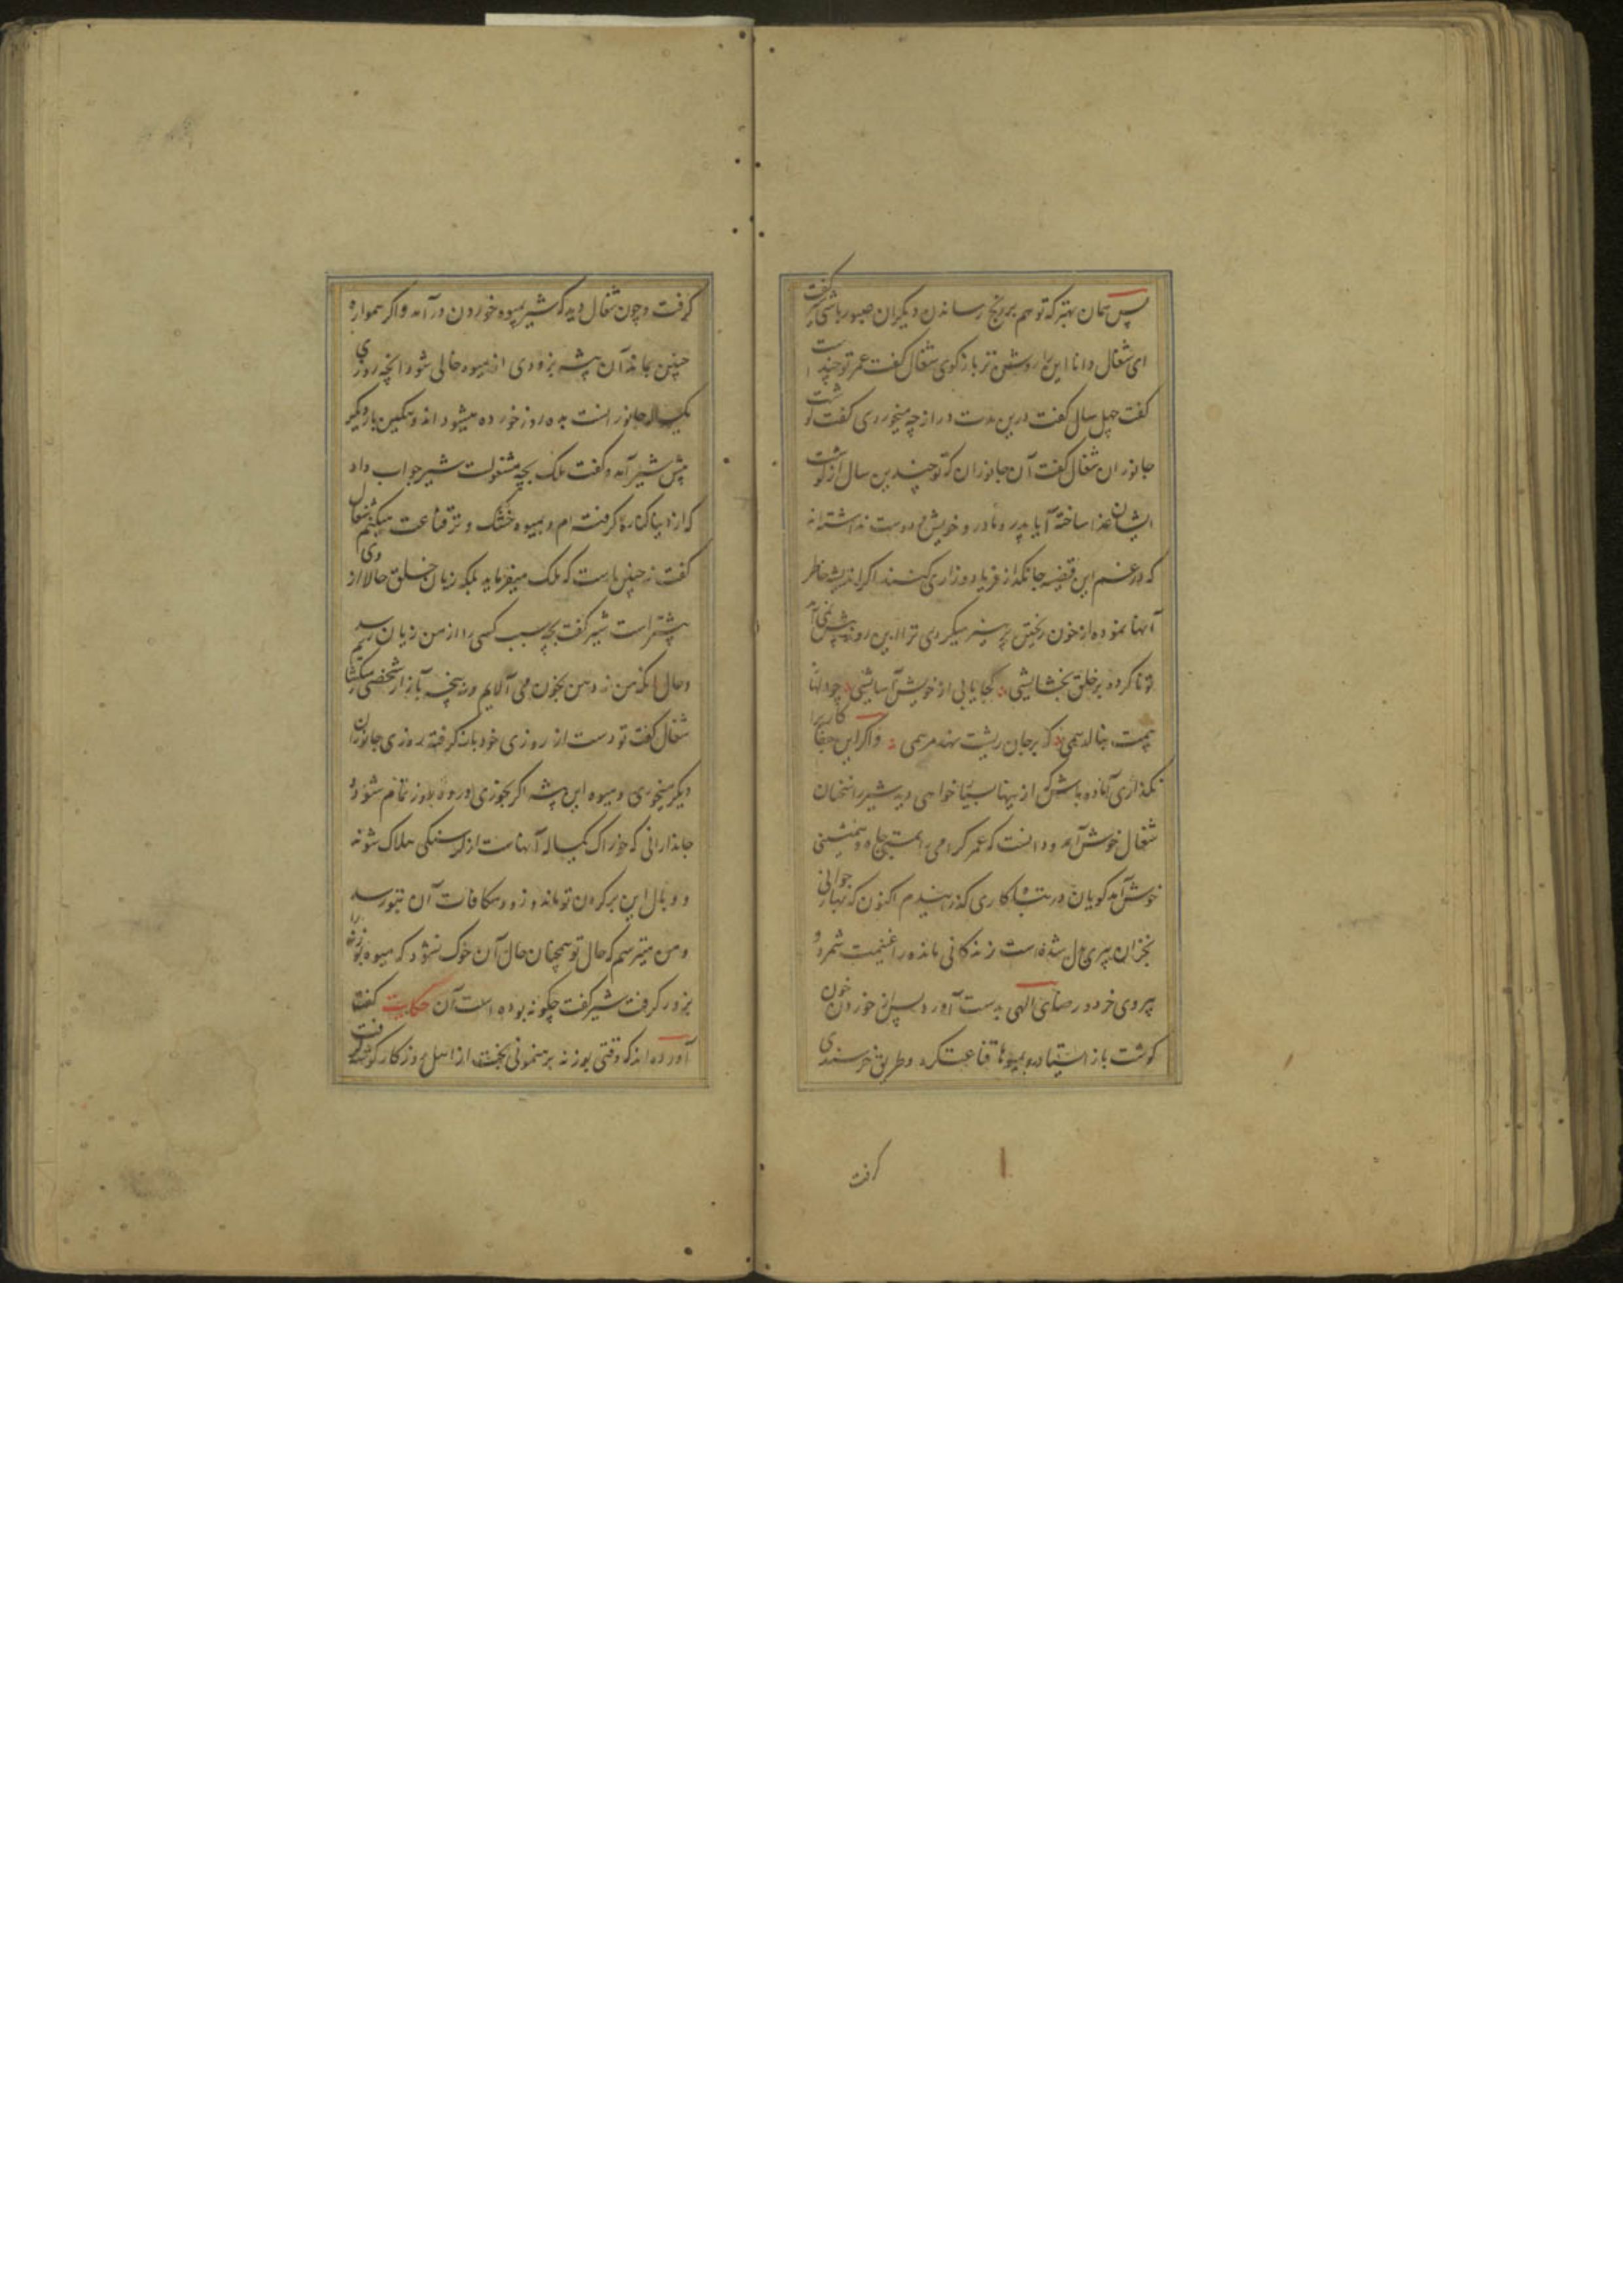 پس همان بهتر که تو هم بر رنج رساندن دیگران صبور باشی شیر گفت
ای شغال دانا این را روشن تر بازگوی شغال گفت عمر تو چند است
گفت چهل سال گفت درین مدت دراز چه میخوردی گفت گوشت
جانوران شغال گفت آن جانوران که تو چندین سال از گوشت
ایشان غذا ساخته آیا پدر و مادر و خویش و دوست نداشتند
که در غم این قضیه جانگداز فریاد و زاری کنند اگر اندیشه خاطر
آنها نموده از خون ریختن پرهیز میکردی ترا این روز پیش نمی آمد
تو نا کرده بر خلق بخشایشی کجا یابی از خویش آسایشی چو دلها
همت بنالد همی که بر جان ریشت نهد مرهمی و اگر این جفا کاریرا
نگذاری آماده باش که از ینها بسیار خواهی دید شیر را سخنان
شغال خوش آمد و دانست که عمر گرامی همنشینی
خوش آمد گویان در تباه کاری گذرانیدم اکنون که بهار جوانی
بخزان پیری بدل شده است زندگانی مانده را غنیمت شمرد و
پیروی خرد و رضای الهی بدست آورد پس از خوردن خون
گوشت باز ایستاد و بمیوها قناعت کرد و طریق خرسندی
گرفت
گرفت و چون شغال دید که شیر بمیوه خوردن در آمد و اگر همواره
چنین بماند آن بیشه بزودی از میوه خالی شود آنچه روزی
یکساله جانورانست بده روز خورده میشود اندوهگین بار دیگر
پیش شیر آمد و گفت ملک بچه مشغولست شیر جواب داد
که از دنیا کناره گرفته ام و بمیوه خشک و تر قناعت میکنم شغال
گفت نه چنین است که ملک میفرماید بلکه زیان خلق حالا از وی
بیشتر است شیر گفت بچه سبب کسی را از من زیان رسد
و حال آنکه من نه دهن بخون می آلایم و نه پنجه بآزار شخصی میگشایم
شغال گفت تو دست از روزی خود باز گرفته روزی جانوران
دیگر میخوری و میوه این بیشه اگر بخوری در ده روز تمام شود و
جاندارانی که خوراک یکساله آنهاست از گرسنگی هلاک شوند
و وبال این بر گردن تو ماند و زود مکافات آن بتو رسد
و من میترسم که حال تو همچنان حال آن خوک نشود که میوه بوزنه را
بزور گرفت شیر گفت چگونه بوده است آن حکایت گفت
آورده اند که وقتی بوزنه برهنمونی بخت از اهل روزگار گوشه گرفت